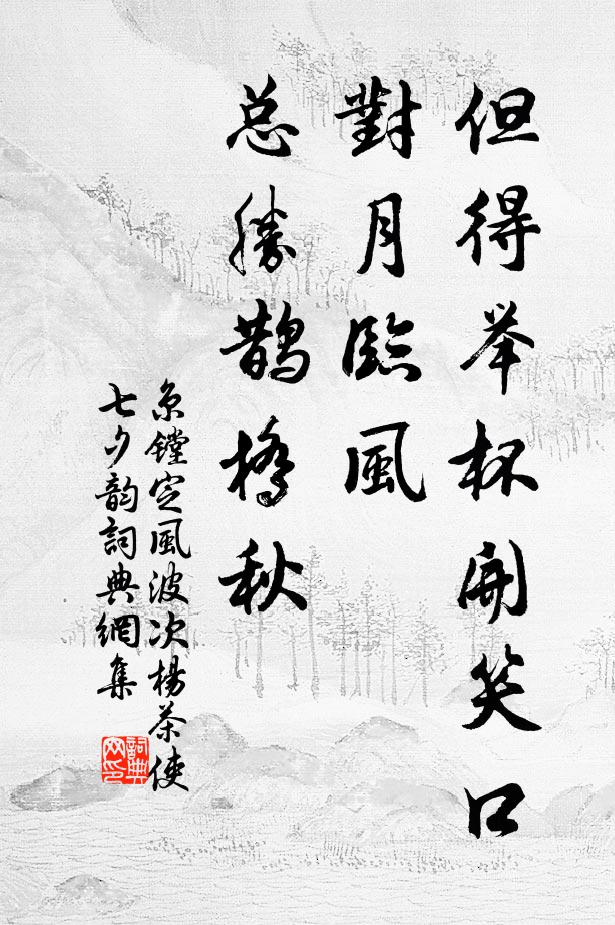 但得举杯開笑口
對月臨風
总勝鹊橋秋
京鏜定風波次楊茶使
七夕韵詞典網集
詞典網印